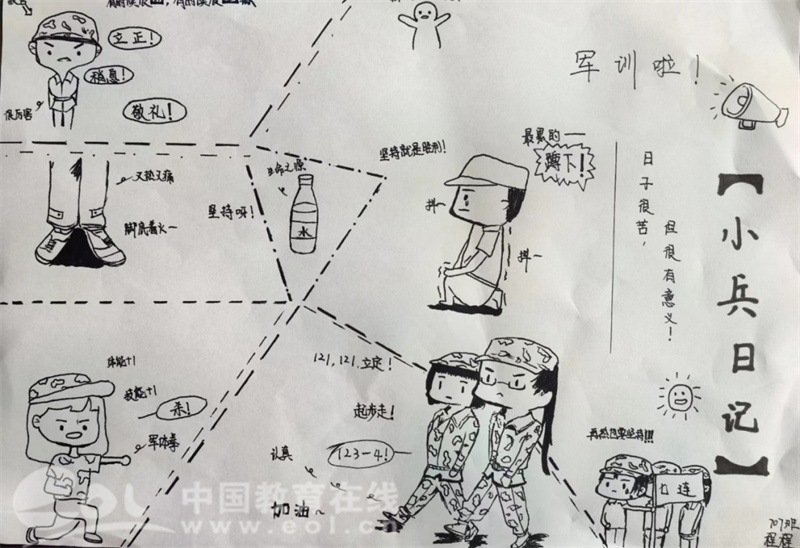 立正！
稍息！
敬礼！
很厉害
又热又痛
脚底着火~
坚持呀！
生命之源
水
坚持就是胜利！
最累的一
蹲下！
抖~
抖~
军训啦！
日子很苦，
但很有意义！
【小兵日记】
体能+1
技能+1
杀！
军体拳
121,121,立定！
起步走！
123-4！
认真
加油~
再热也要坚持!!!
七连
707班
程程
中国教育在线
www.eol.cn